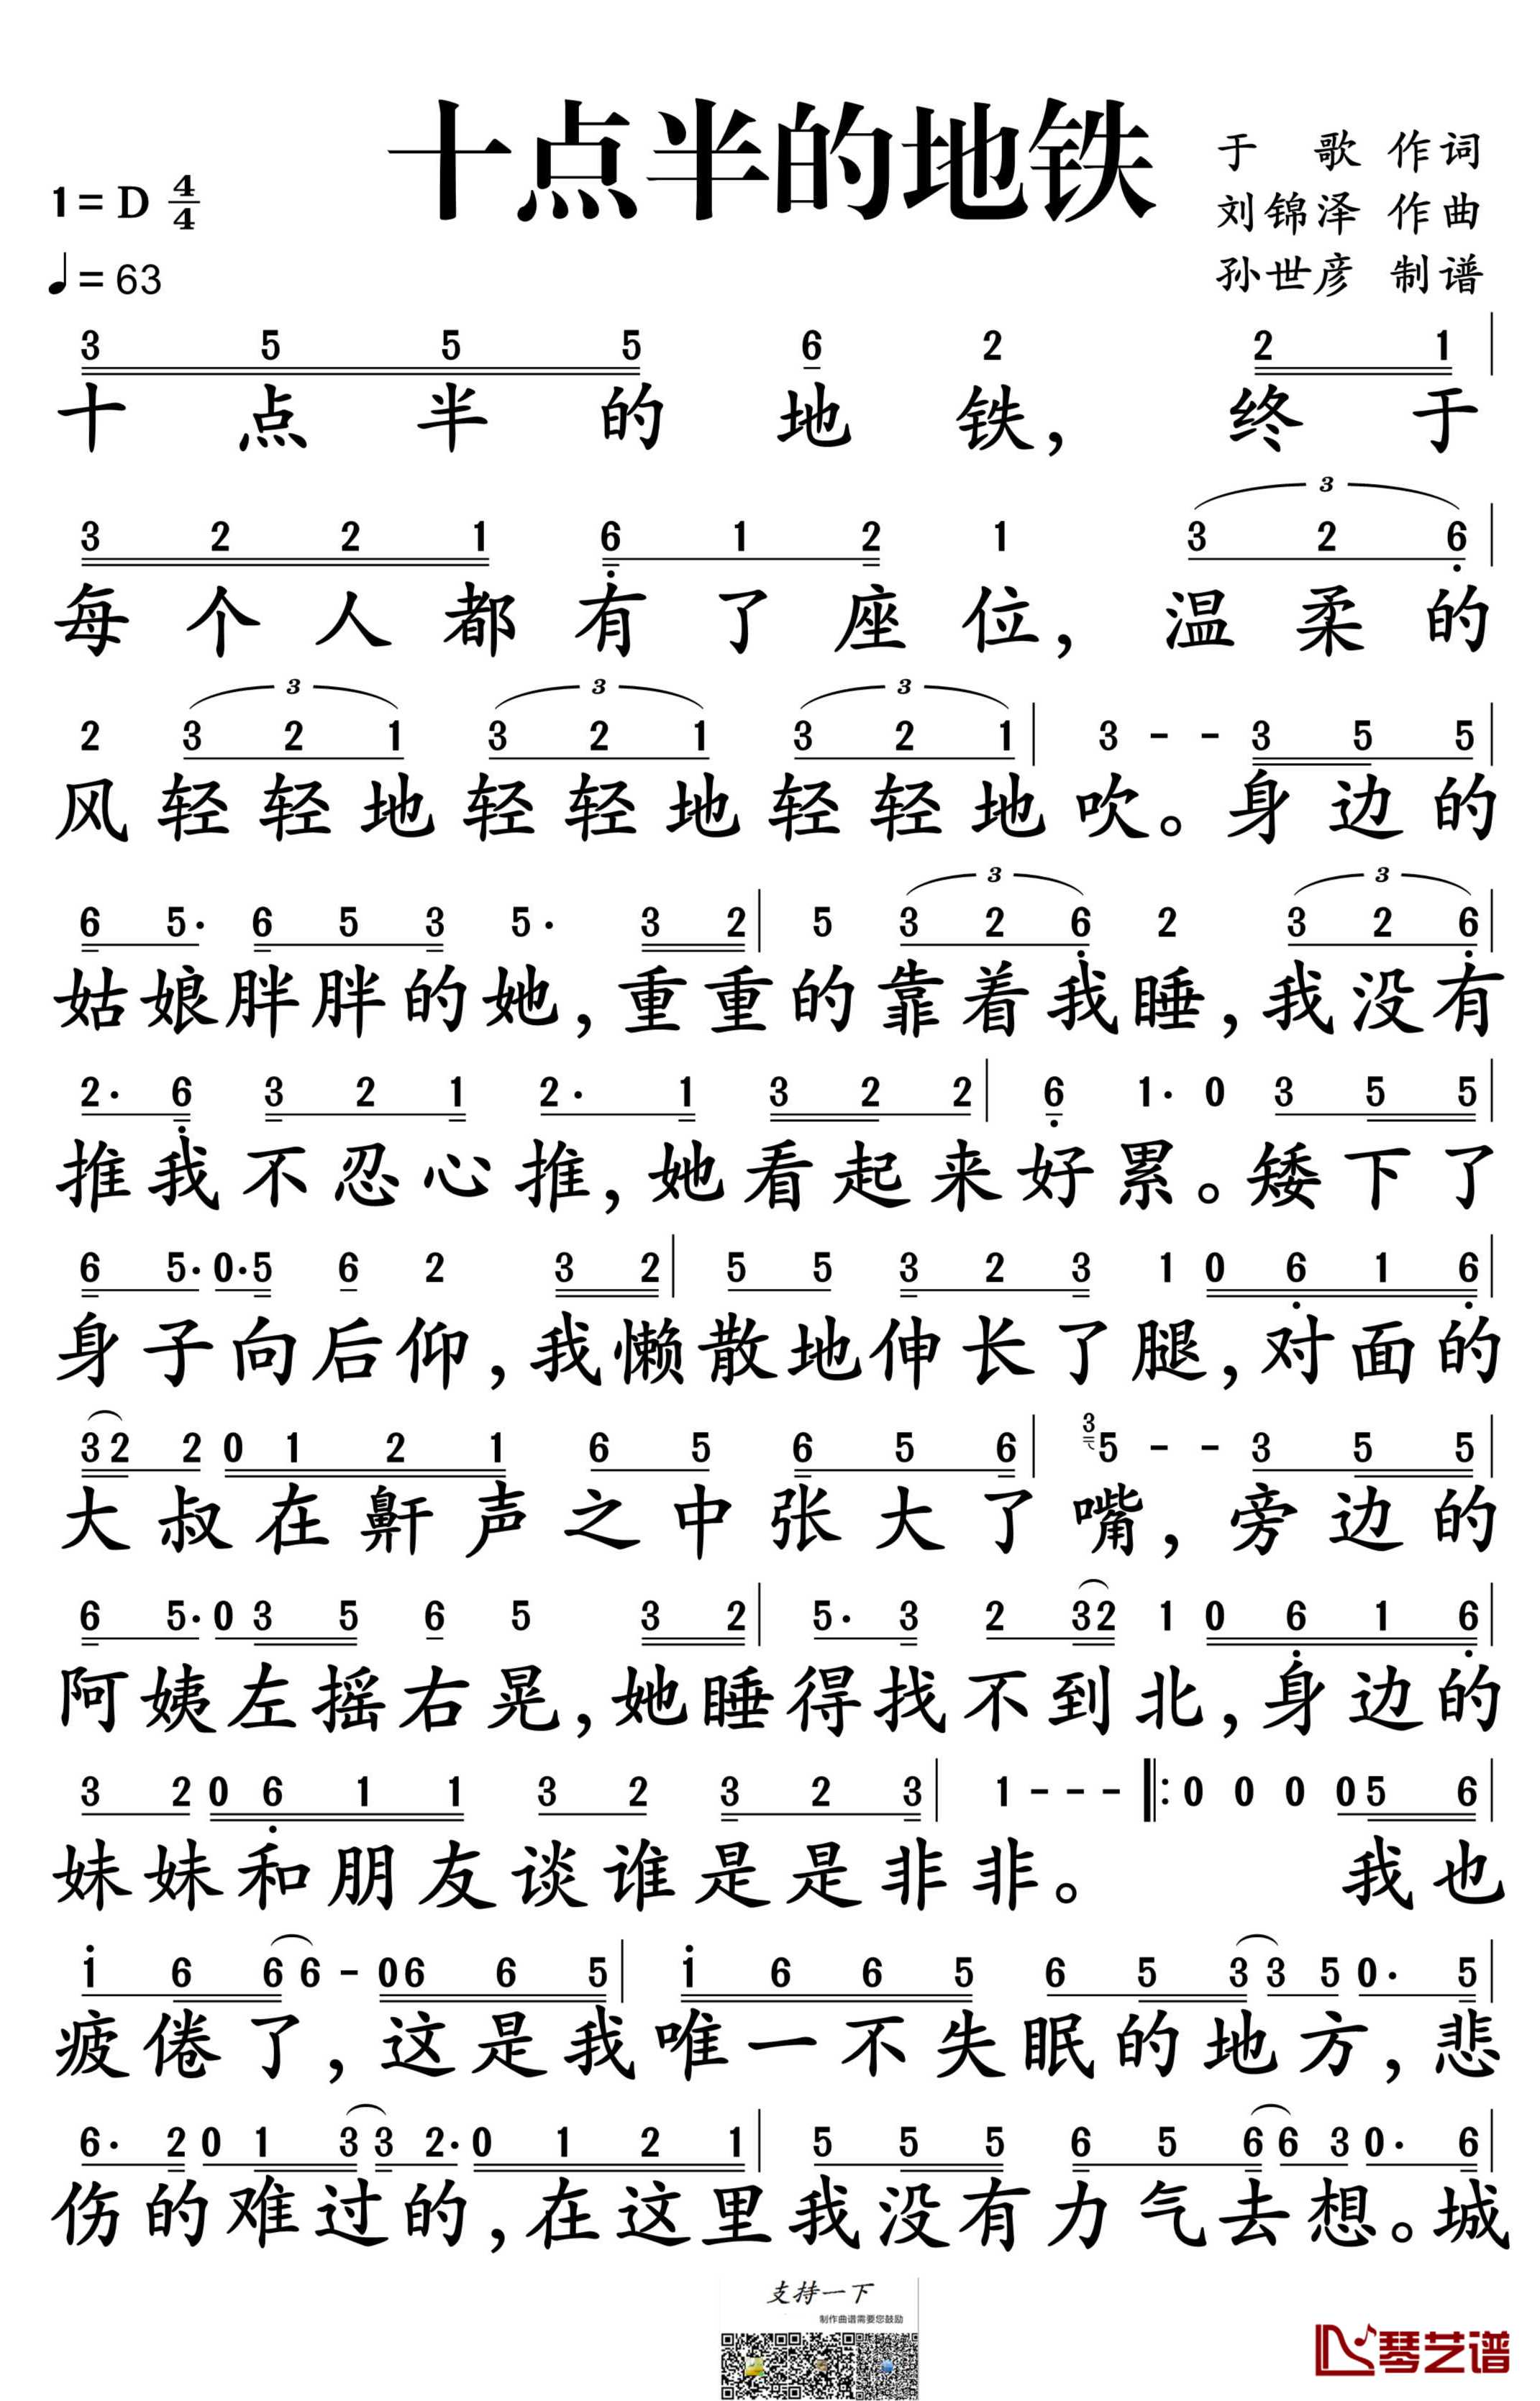 十点半的地铁
于 歌 作词
1=D 4/4
刘锦泽 作曲
♩=63
孙世彦 制谱
3 5 5 5 6 2 2 1
十点半的地铁，终于
3
3 2 2 1 6 1 2 1 3 2 6
每个人都有了座位，温柔的
3 3 3
2 3 2 1 3 2 1 3 2 1 3 - - 3 5 5
风轻轻地轻轻地轻轻地吹。身边的
3 3
6 5· 6 5 3 5· 3 2 5 3 2 6 2 3 2 6
姑娘胖胖的她，重重的靠着我睡，我没有
2· 6 3 2 1 2· 1 3 2 2 6 1· 0 3 5 5
推我不忍心推，她看起来好累。矮下了
6 5· 0· 5 6 2 3 2 5 5 3 2 3 1 0 6 1 6
身子向后仰，我懒散地伸长了腿，对面的
3 2 2 0 1 2 1 6 5 6 5 6 3 5 - - 3 5 5
大叔在鼾声之中张大了嘴，旁边的
6 5· 0 3 5 6 5 3 2 5· 3 2 3 2 1 0 6 1 6
阿姨左摇右晃，她睡得找不到北，身边的
3 2 0 6 1 1 3 2 3 2 3 1 - - - 0 0 0 0 5 6
妹妹和朋友谈谁是是非非。 我也
1 6 6 6 - 0 6 6 5 1 6 6 5 6 5 3 3 5 0· 5
疲倦了，这是我唯一不失眠的地方，悲
6· 2 0 1 3 3 2· 0 1 2 1 5 5 5 6 5 6 6 3 0· 6
伤的难过的，在这里我没有力气去想。城
支持一下
制作曲谱需要您鼓励
琴艺谱